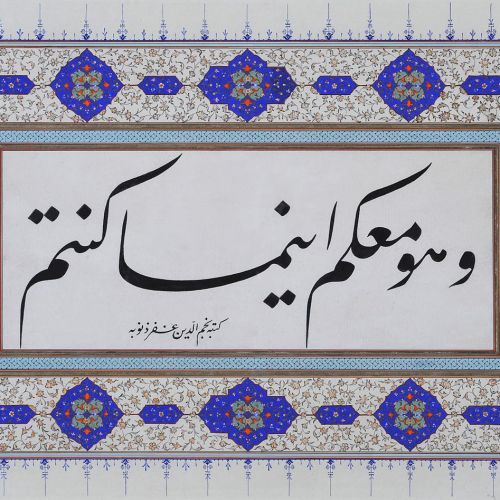 وهو معکم اینما کنتم
کتبه نجم الدین غفر ذنوبه